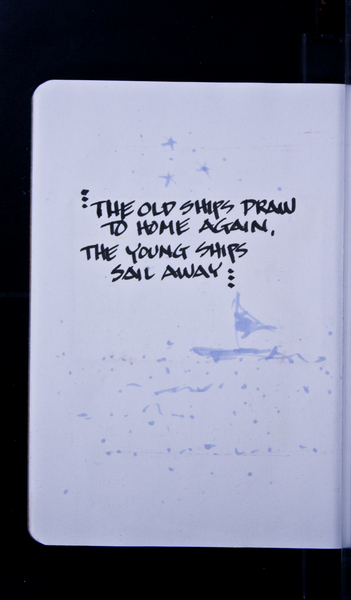 "THE OLD SHIPS DRAW
TO HOME AGAIN,
THE YOUNG SHIPS
SAIL AWAY"